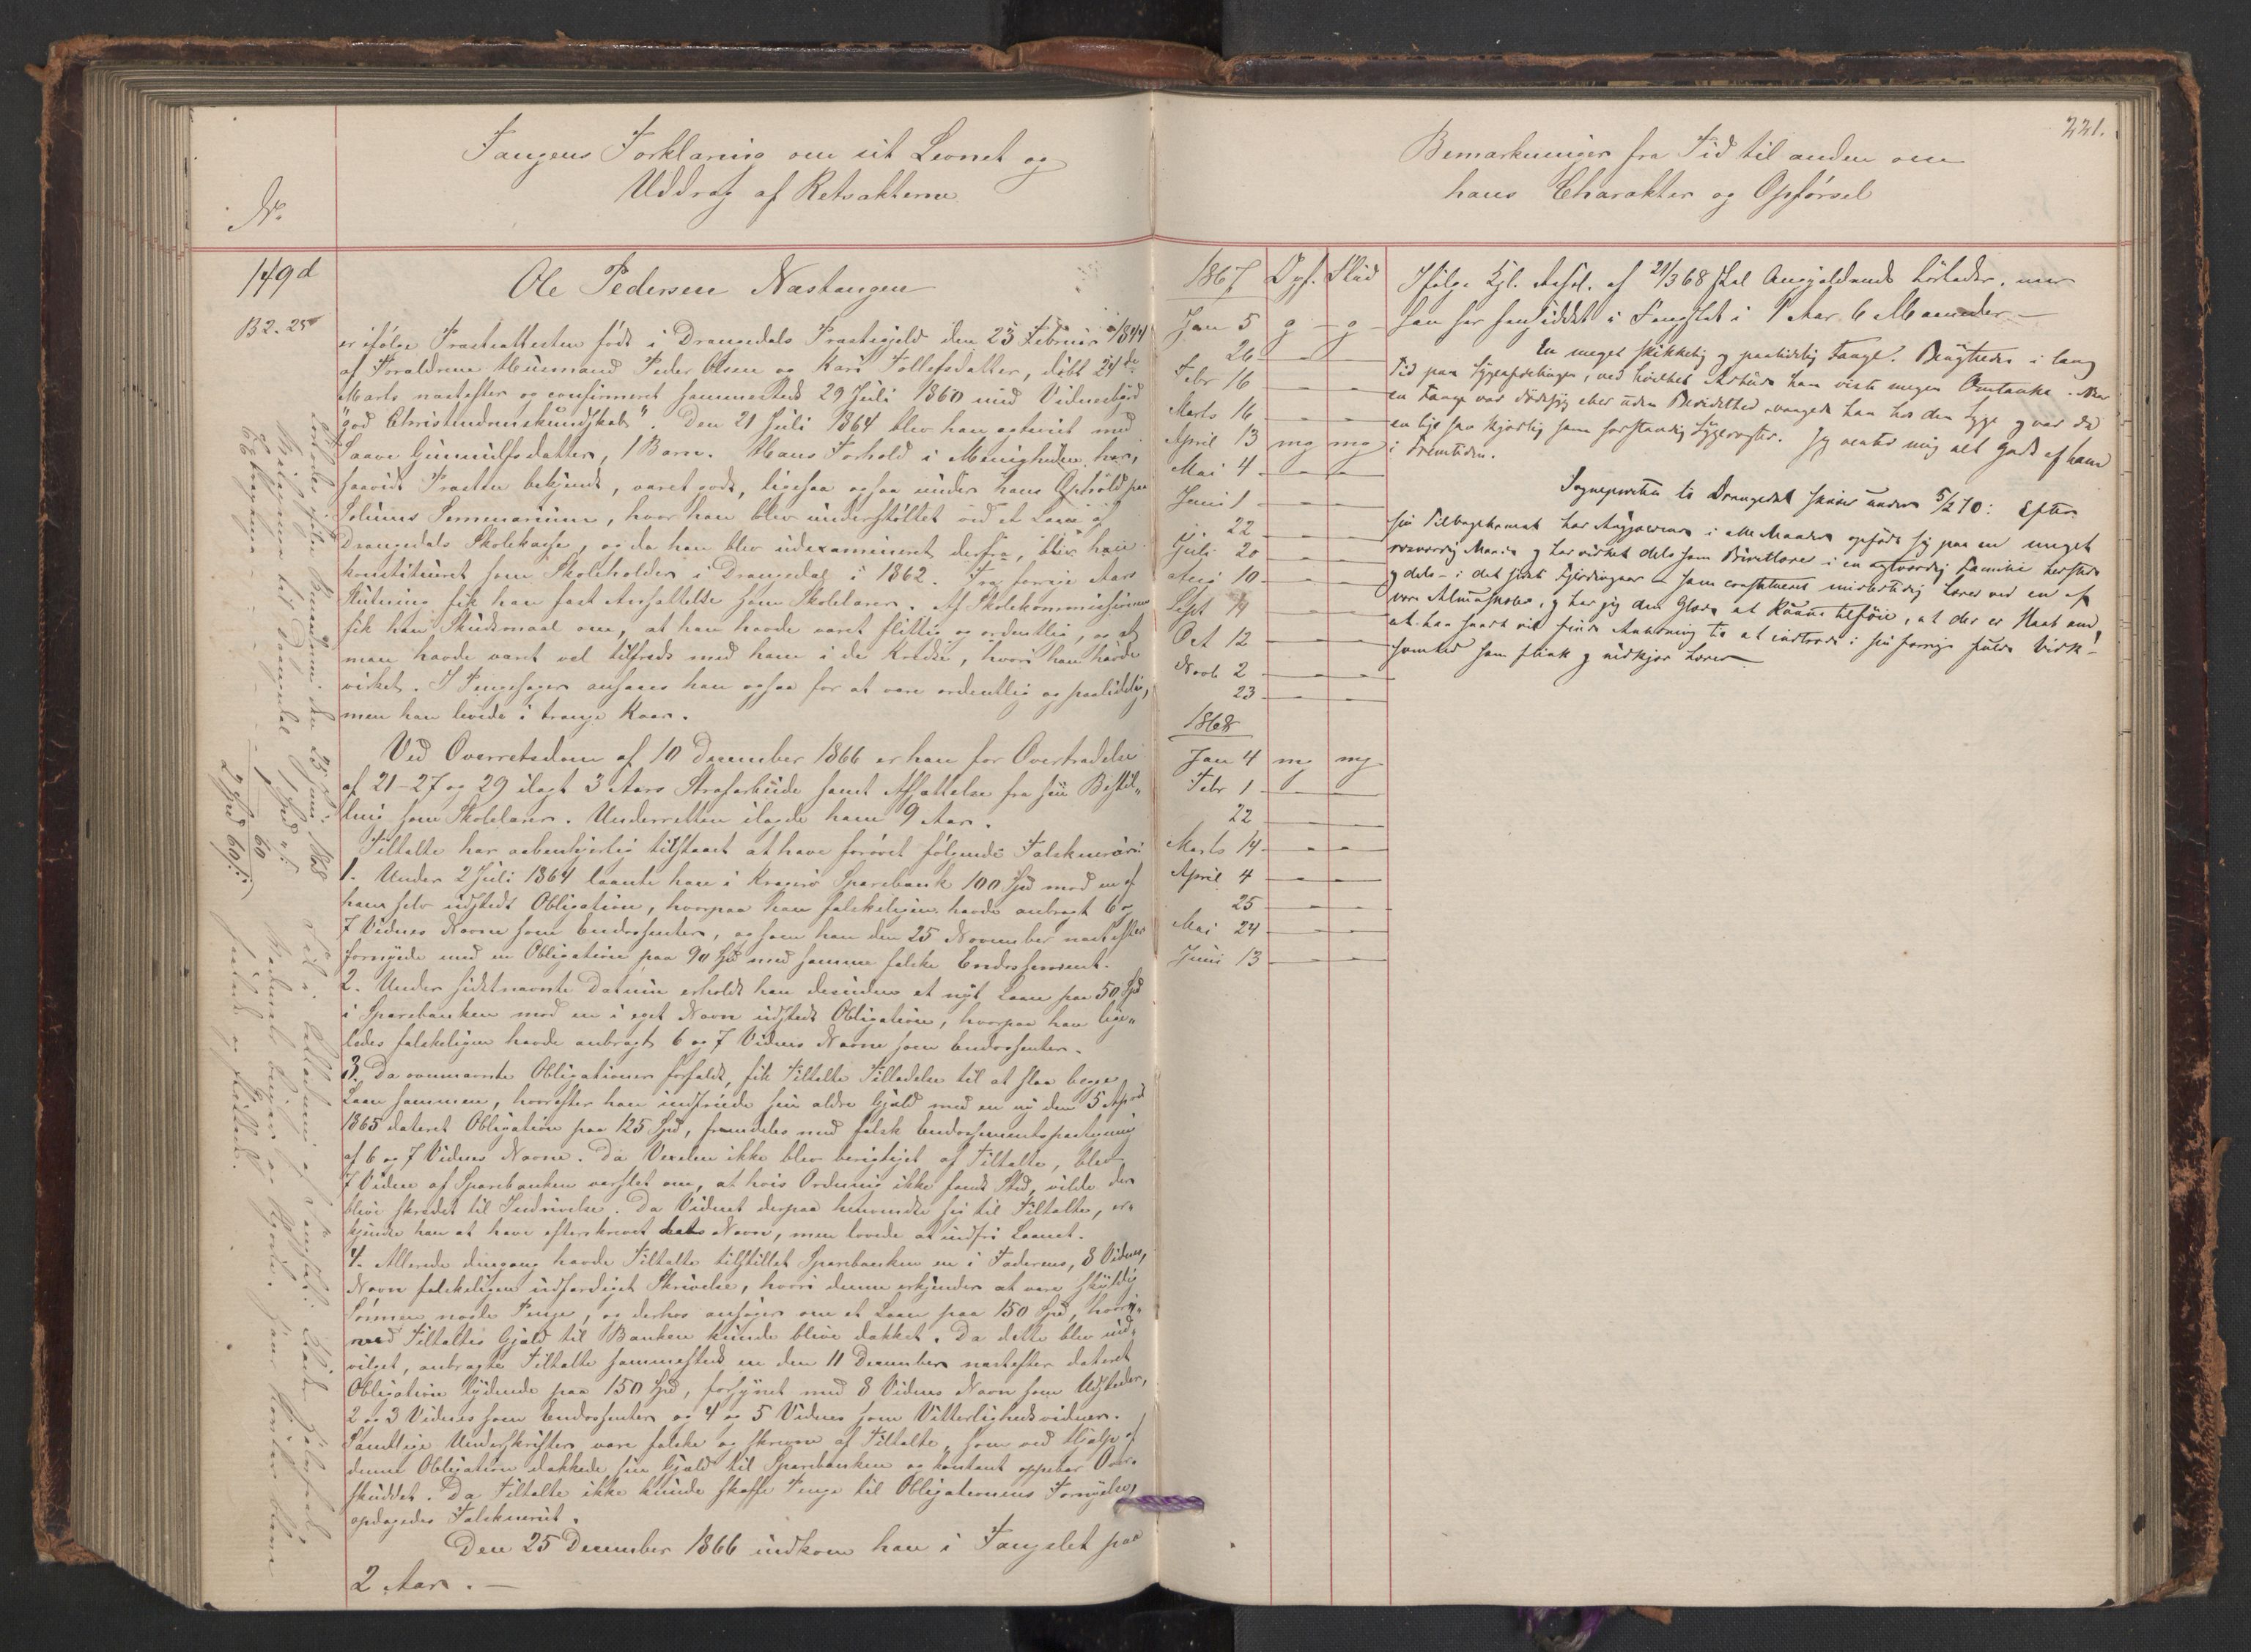 Fangens Forklaring om sit Levnet og
Uddrag af Retsakterne
No.
149d
B2. 25
Ole Pedersen Næstangen
er ifølge Præsteattesten født i Drangedals Præstegjeld den 23 Februar 1844
af Forældrene Huusmand Peder Olsen og Kari Tollefsdatter, døbt 24de
Marts næstefter og confirmeret sammesteds 29 Juli 1860 med Vidnesbyrd
"god Christendomskundskab". Den 21 Juli 1864 blev han ægteviet med
Gunnulfsdatter, 1 Barn. Hans Forhold i Menigheden har,
saavidt Præsten bekjendt, været godt, ligesaa ogsaa under hans Ophold paa
Seminarium, hvor han blev understøttet ved et Laan af
Drangedals Skolekasse, og da han blev udexamineret derfra, blev han
konstitueret som Skoleholder i Drangedal i 1862. Fra forrige Aars
Slutning fik han fast Ansættelse som Skolelærer. Af Skolekommissionen
fik han Skudsmaal om, at han havde været flittig og ordentlig, og at
man havde været vel tilfreds med ham i de Kredse, hvori han havde
virket. I Pengesager ansaaes han ogsaa for at være ordentlig og paalidelig,
men han levede i trange Kaar.
Ved Overretsdom af 10 December 1866 er han for Overtrædelse
af 21-27 og 29 ilagt 3 Aars Strafarbeide samt Afsættelse fra sin Bestil-
ling som Skolelærer. Underretten ilagde ham 9 Aar.
Tiltalte har aabenhjertig tilstaaet at have forøvet følgende Falsknerier:
1. Under 2 Juli 1864 laante han i Kragerø Sparebank 100 Spd mod en af
ham selv udstedt Obligation, hvorpaa han falskeligen havde anbragt 6 og
7 Vidnes Navne som Endossenter, og som han den 25 November næstefter
fornyede med en Obligation paa 90 Spd med samme falske Endossement.
2. Under sidstnævnte Datum erholdt han desuden et nyt Laan paa 50 Spd
i Sparebanken mod en i eget Navn udstedt Obligation, hvorpaa han lige-
ledes falskeligen havde anbragt 6 og 7 Vidnes Navne som Endossenter.
3. Da ovennævnte Obligationer forfaldt, fik Tiltalte Tilladelse til at slaa begge
Laan sammen, hvorefter han indfriede sin ældre Gjæld med en ny den 5 April
1865 dateret Obligation paa 125 Spd, fremdeles med falsk Endossementspaategning
af 6 og 7 Vidnes Navne. Da Vexelen ikke blev berigtiget af Tiltalte, blev
7 Vidne af Sparebanken varslet om, at hvis Ordning ikke fandt Sted, vilde der
blive skredet til Inddrivelse. Da Vidnet derpaa henvendte sig til Tiltalte, er-
kjendte han at have efterskrevet dets Navn, men lovede at indfri Laanet.
4. Allerede dengang havde Tiltalte tilstillet Sparebanken en i Faderens, 8 Vidnes,
Navn falskeligen udfærdiget Skrivelse, hvori denne erkjender at være skyldig
Sønnen nogle Penge, og derhos ansøger om et Laan paa 150 Spd, hvor-
med Tiltaltes Gjæld til Banken kunde blive dækket. Da dette blev ind-
vilget, anbragte Tiltalte sammesteds en den 11 December næstefter dateret
Obligation lydende paa 150 Spd, forsynet med 8 Vidnes Navn som Udsteder,
2 og 3 Vidnes som Endossenter og 4 og 5 Vidnes som Vitterlighedsvidner.
Samtlige Underskrifter vare falske og skrevne af Tiltalte, som ved Hjælp af
denne Obligation dækkede sin Gjæld til Sparebanken og kontant oppebar Over-
skuddet. Da Tiltalte ikke kunde skaffe Penge til Obligationens Fornyelse,
opdagedes Falskneriet.
Den 25 December 1866 indkom han i Fængslet paa
2 Aar.
Løslades ifølge Benaadning den 25 Juni 1868
Reisepenge til Drangedal 1 Spd
60
2 Spd 60 s
221.
Bemærkninger fra Tid til anden om
hans Charakter og Opførsel
1867 Opf. Flid
Jan 5 g g
26 — —
Febr 16 — —
Marts 16 — —
April 13 mg mg
Mai 4 — —
Juni 1 — —
22 — —
Juli 20 — —
Aug 10 — —
Sept 14 — —
Oct 12 — —
Novb 2 — —
23 — —
1868
Jan 4 mg mg
Febr 1 — —
22 — —
Marts 14 — —
April 4 — —
25 — —
Mai 24 — —
Juni 13 — —
Ifølge Kgl. Resol. af 21/3 68 skal Angjældende løslades, naar
han har hensiddet i Fængslet i 1 Aar 6 Maaneder.
En meget skikkelig og paalidelig Fange. Benyttedes i lang
Tid paa Sygeafdelingen, ved hvilket Arbeide han viste megen Omtanke. Naar
en Fange var dødssyg eller uden Bevidsthed, vaagede han hos den Syge og var da
en lige saa kjærlig som forstandig Sygevogter. Jeg venter mig alt Godt af ham
i Fremtiden.
Sognepresten til Drangedal skriver under 5/2 70: Efter
sin Tilbagekomst har Angjældende i alle Maader opført sig paa en meget
rosværdig Maade og har virket dels som Privatlærer i en agtværdig Familie hersteds
og dels — i det sidste Fjerdingaar — som constitueret midlertidig Lærer ved en af
vore Almueskoler, og har jeg den Glæde at kunne tilføie, at der er Haab om,
at han snart vil finde Anledning til at indtræde i sin forrige fulde Virk-
somhed som flink og vidkjær Lærer